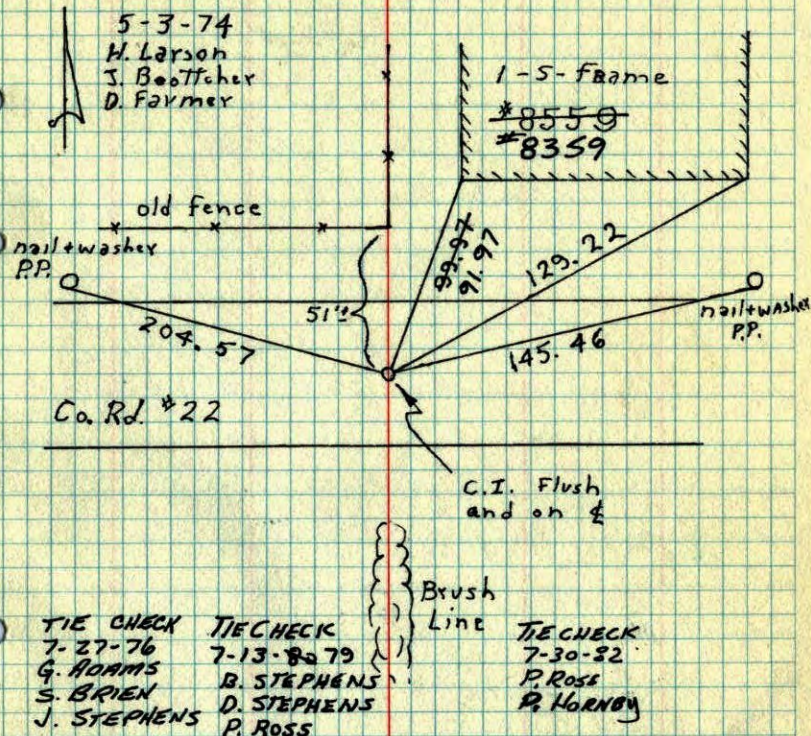 5-3-74
H. Larson
J. Boottcher
D. Farmer
1-S-Frame
#8559
#8359
old fence
nail+washer
P.P.
99.97
91.97
129.22
nail+washer
P.P.
51'±
204.57
145.46
Co. Rd. #22
C.I. Flush
and on ℄
Brush
Line
TIE CHECK
7-27-76
G. ADAMS
S. BRIEN
J. STEPHENS
TIE CHECK
7-13-80 79
B. STEPHENS
D. STEPHENS
P. ROSS
TIE CHECK
7-30-82
P. ROSS
P. HORNBY